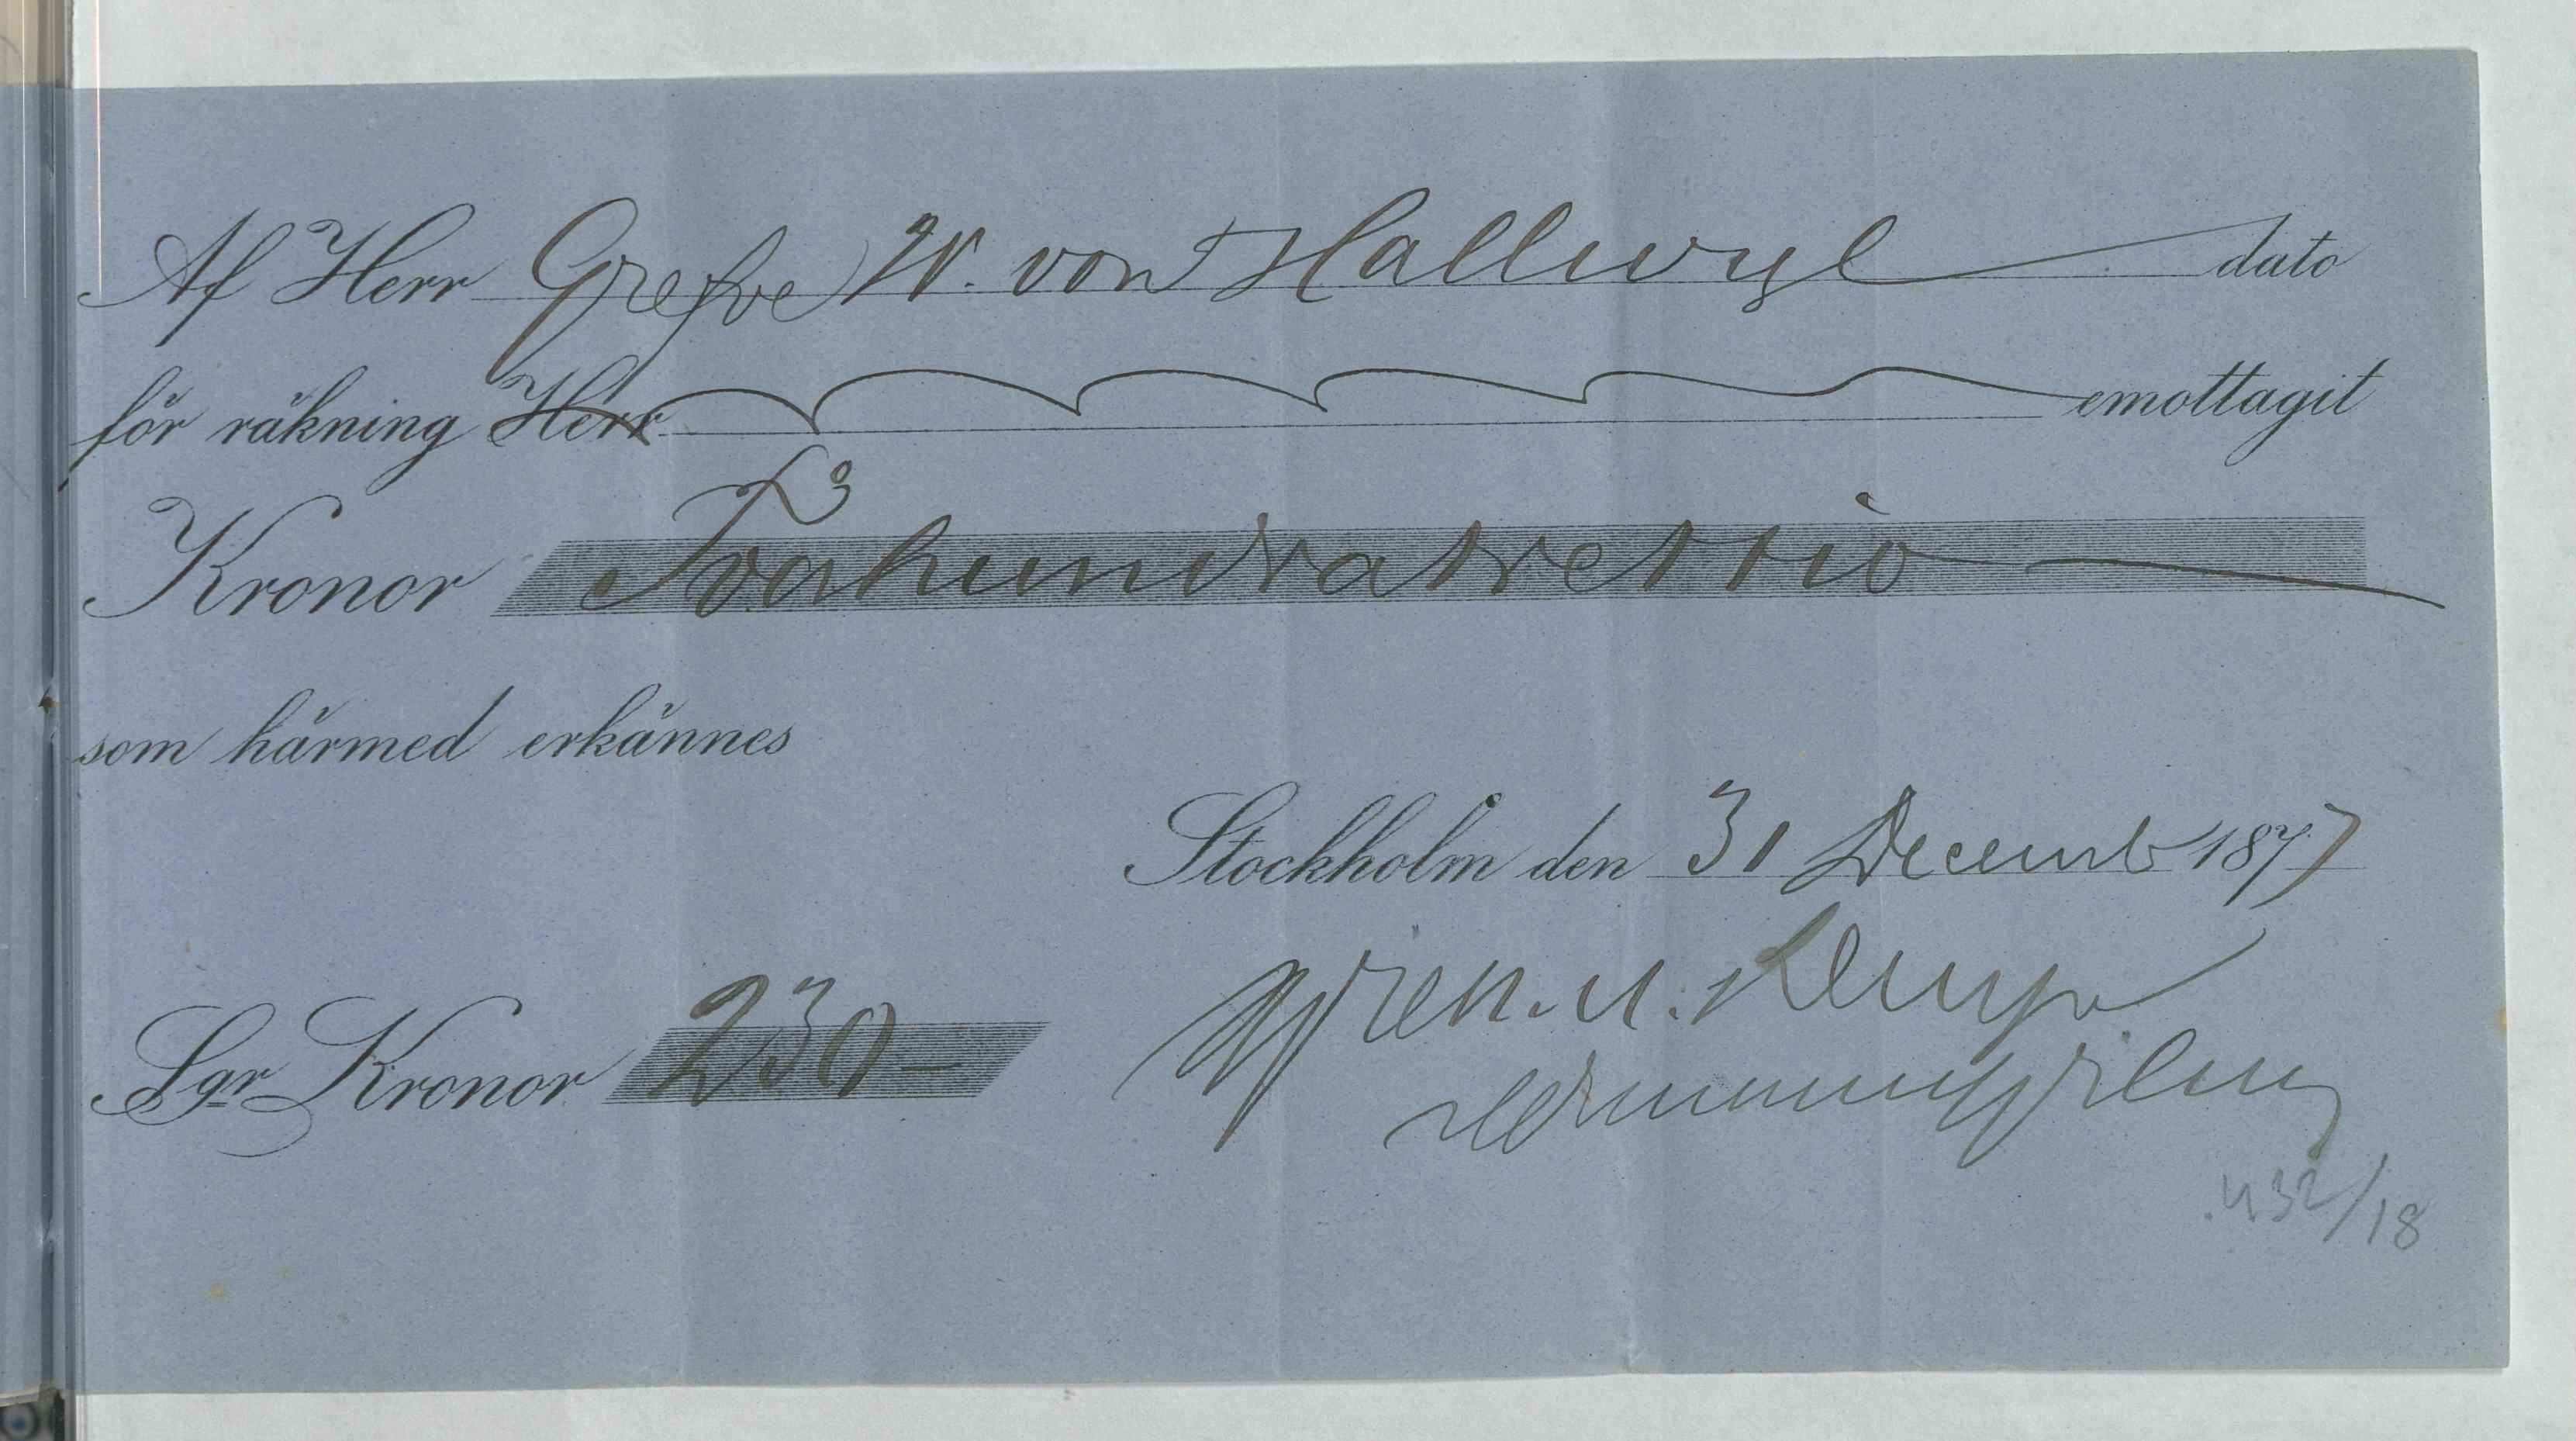 Af Herr Grefve W. von Hallwyl dato
för räkning Herr emottagit
Kronor Tvåhundratrettio
som härmed erkännes
Stockholm den 31 Decemb 1877
Sgr Kronor 230 —
432/18